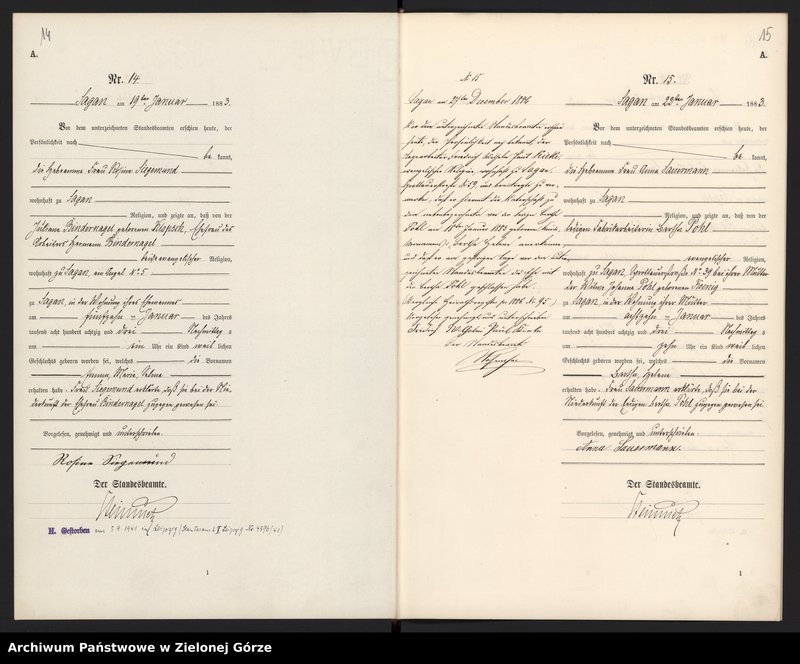 14
A.
Nr. 14.
Sagan am 19ten Januar 1883.
Vor dem unterzeichneten Standesbeamten erschien heute, der
Persönlichkeit nach
bekannt,
die Hebamme Frau Rosine Siegemund
wohnhaft zu Sagan
Religion, und zeigte an, daß von der
Juliane Bindernagel geborenen Klopsch, Ehefrau des
Arbeiters Hermann Bindernagel
beide evangelischer Religion,
wohnhaft zu Sagan, am Nr. 5
zu Sagan, in der Wohnung ihres Ehemannes
am fünfzehn = Januar des Jahres
tausend acht hundert achtzig und drei Nachmittag s
um ein Uhr ein Kind weiblichen
Geschlechts geboren worden sei, welches die Vornamen
Emma, Marie, Selma
erhalten habe. Frau Siegemund erklärte, daß sie bei der Nie
derkunft der Ehefrau Bindernagel zugegen gewesen sei
Vorgelesen, genehmigt und unterschrieben.
Rosine Siegemund
Der Standesbeamte.
H. Gestorben am 7.4.1941 in Leipzig (Standesamt II Leipzig Nr. 4596/41)
1
№ 15
Sagan am 27ten Dezember 1886
Vor dem unterzeichneten Standesbeamten erschien
heute, der Persönlichkeit nach bekannt, der
evangelischer Religion, wohnhaft zu Sagan,
№ 59, und beantragte zu ver-
merken, daß er hiermit die Vaterschaft zu
dem nebenbezeichneten, von der ledigen Bertha
Pohl am 18ten Januar 1883 geborenen Kinde,
"Bertha Helene" anerkenne
und daß er am gestrigen Tage vor dem unter-
zeichneten Standesbeamten die Ehe mit
der Bertha Pohl geschlossen habe.
(Vergleich Heiratsregister pro 1886 № 95)
Vorgelesen genehmigt und unterschrieben
Der Standesbeamte
15
A.
Nr. 15.
Sagan am 22ten Januar 1883.
Vor dem unterzeichneten Standesbeamten erschien heute, der
Persönlichkeit nach
bekannt,
die Hebamme Frau Anna Sauermann
wohnhaft zu Sagan
Religion, und zeigte an, daß von der
ledigen Fabrikarbeiterin Bertha Pohl
evangelischer Religion,
wohnhaft zu Sagan, № 39, bei ihrer Mutter
der Witwe Johanne Pohl geborenen König
zu Sagan in der Wohnung ihrer Mutter
am achtzehn = Januar des Jahres
tausend acht hundert achtzig und drei Nachmittag s
um zehn Uhr ein Kind weiblichen
Geschlechts geboren worden sei, welches die Vornamen
Bertha Helene
erhalten habe. Frau Sauermann erklärte, daß sie bei der
Niederkunft der ledigen Bertha Pohl zugegen gewesen sei
Vorgelesen, genehmigt und unterschrieben.
Anna Sauermann.
Der Standesbeamte.
1
Archiwum Państwowe w Zielonej Górze